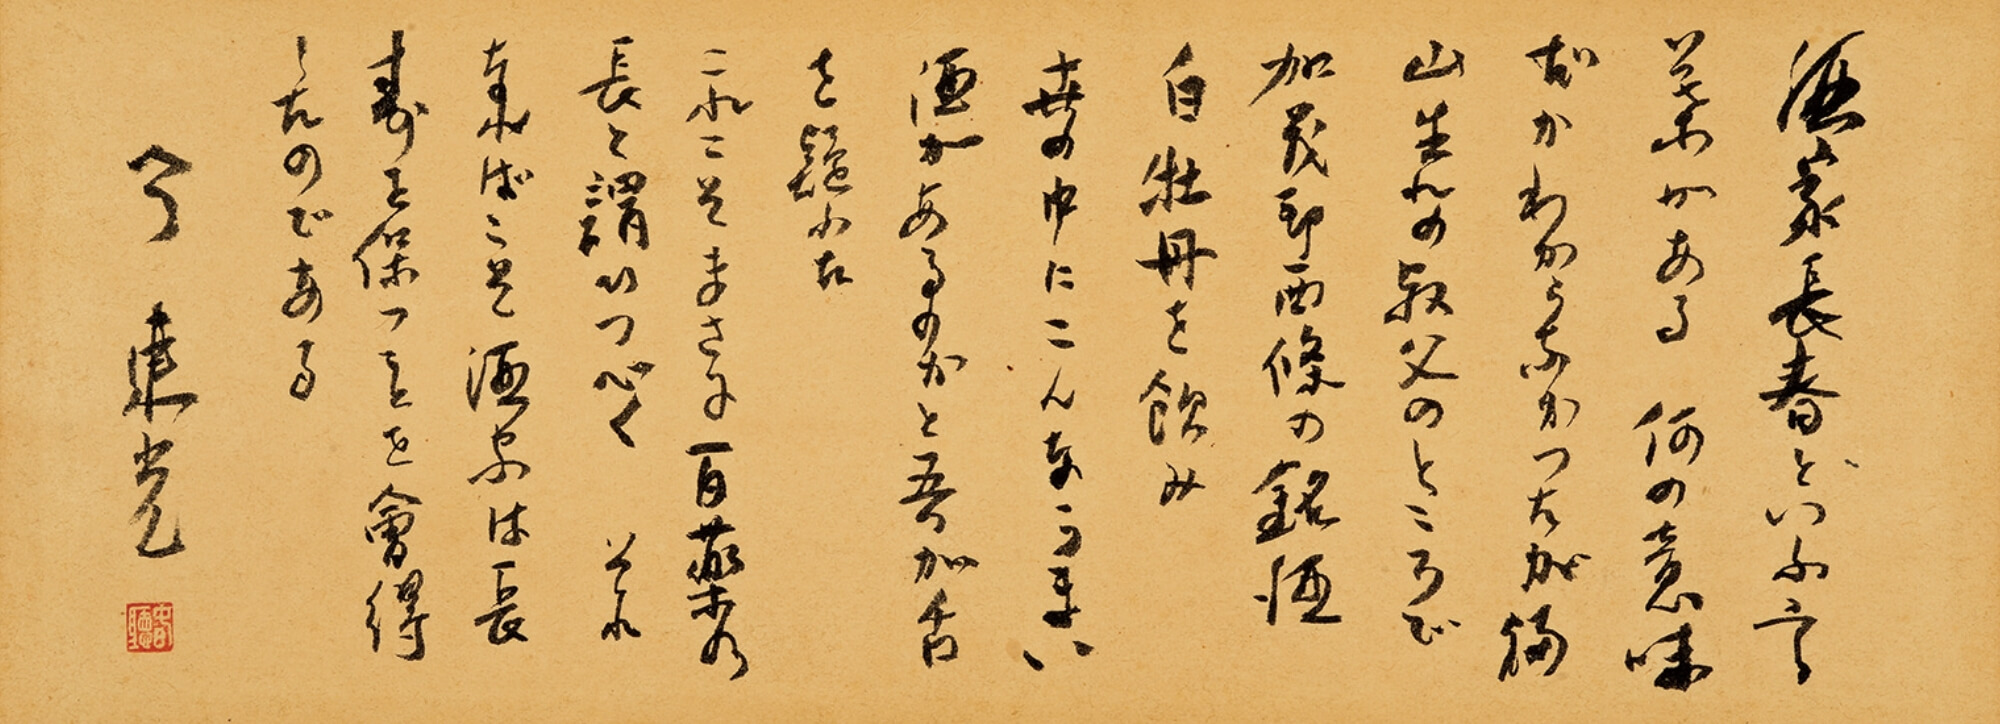 酒家長春といふ言
葉がある 何の意味
だかわからなかつたが福
山生れの叔父のところで
加茂郡西條の銘酒
白牡丹を飲み
世の中にこんなうまい
酒があるのかと吾が舌
を疑つた
これこそまさに百薬の
長と謂ひつべく それ
なればこそ酒家は長
寿を保つことを會得
したのである
今 東光